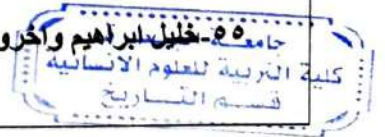 ٥٥-خليل ابراهيم واخرو
جامعـ
كلية التربية للعلوم الانسانية
قسـم التـاريخ